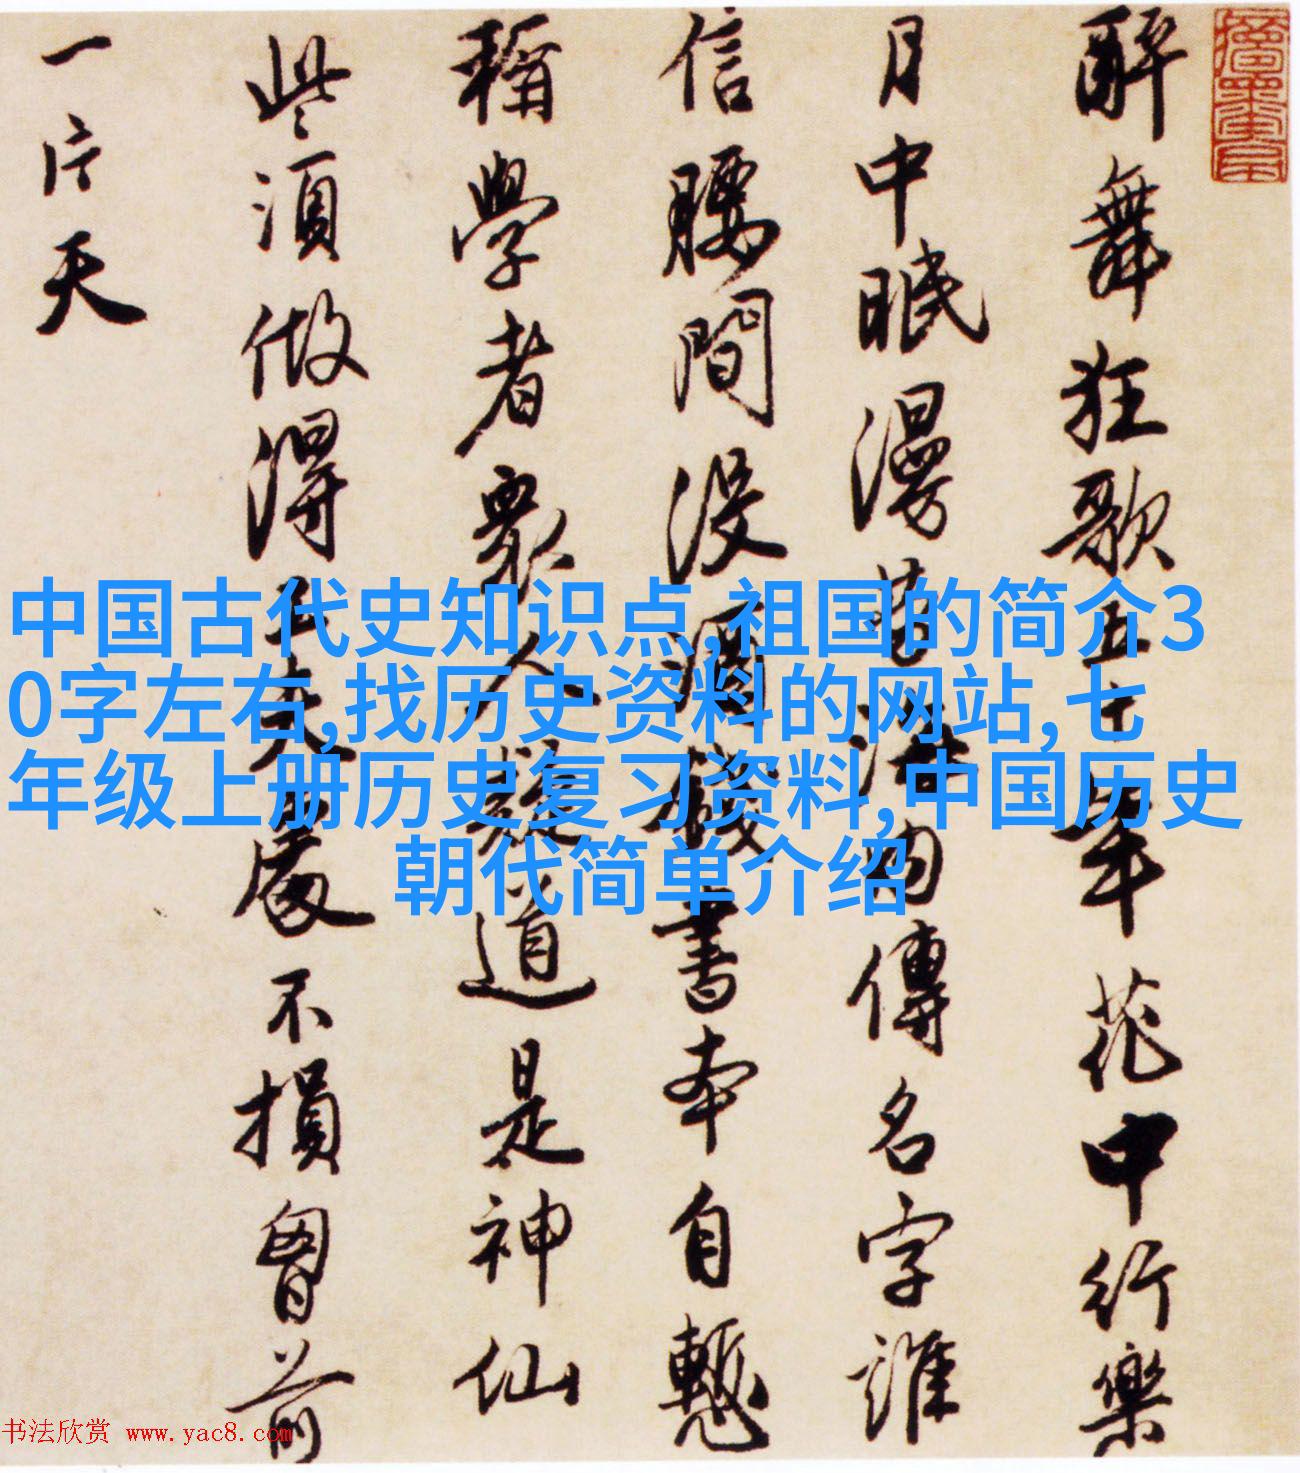 醉舞狂歌五十年花中行樂
月中眠漫勞海內傳名字誰
信腰間沒酒錢書本自慙
稱學者衆人疑道是神仙
些須做得工夫處不損胷前
一片天
中国古代史知识点,祖国的简介3
0字左右,找历史资料的网站,七
年级上册历史复习资料,中国历史
朝代简单介绍
书法欣赏 www.yac8.com